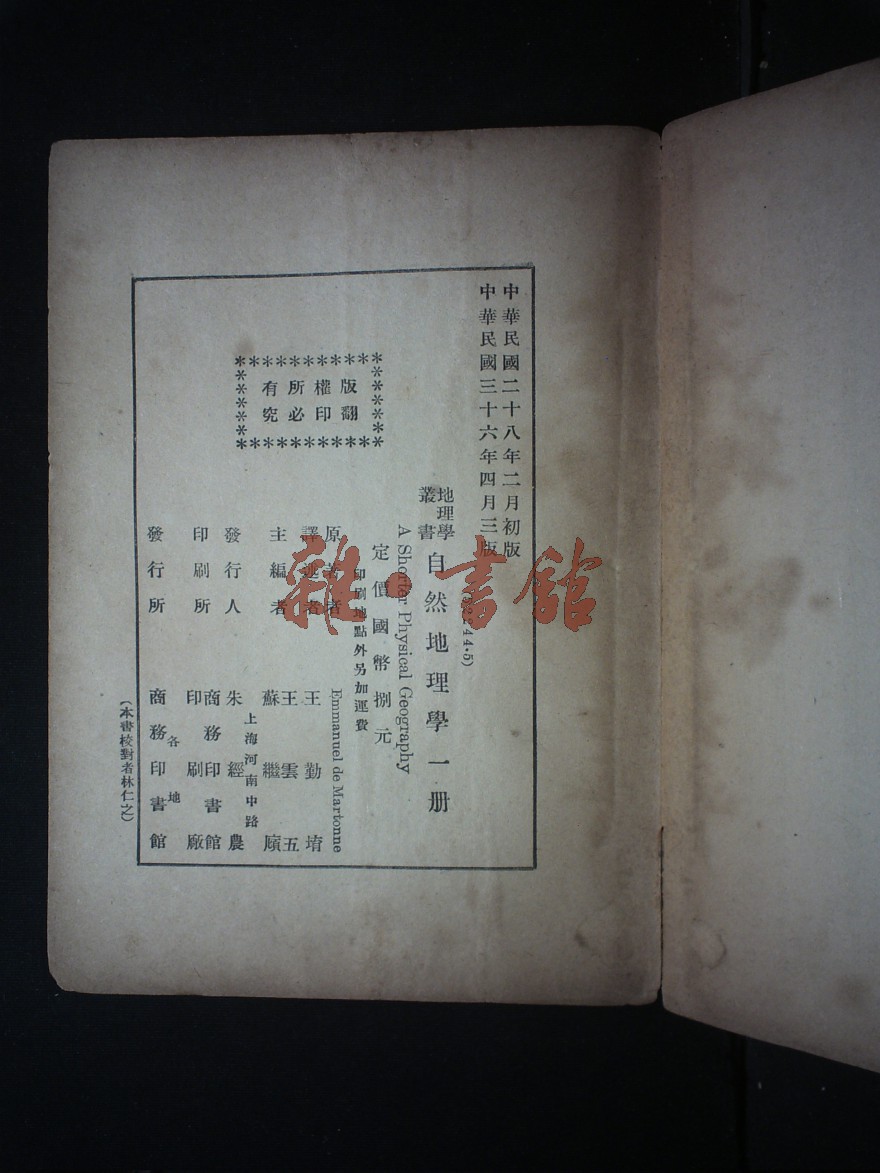 中華民國二十八年二月初版
中華民國三十六年四月三版
44·5)
地理學
叢書
自然地理學一册
A Shorter Physical Geography
定價國幣捌元
印刷地點外另加運費
版權所有
翻印必究
原著者 Emmanuel de Martonne
譯述者 王勤堉
主編者 王雲五
蘇繼廎
發行人 朱經農
上海河南中路
印刷所 商務印書館
印刷廠
各地
發行所 商務印書館
(本書校對者林仁之)
雜·書館